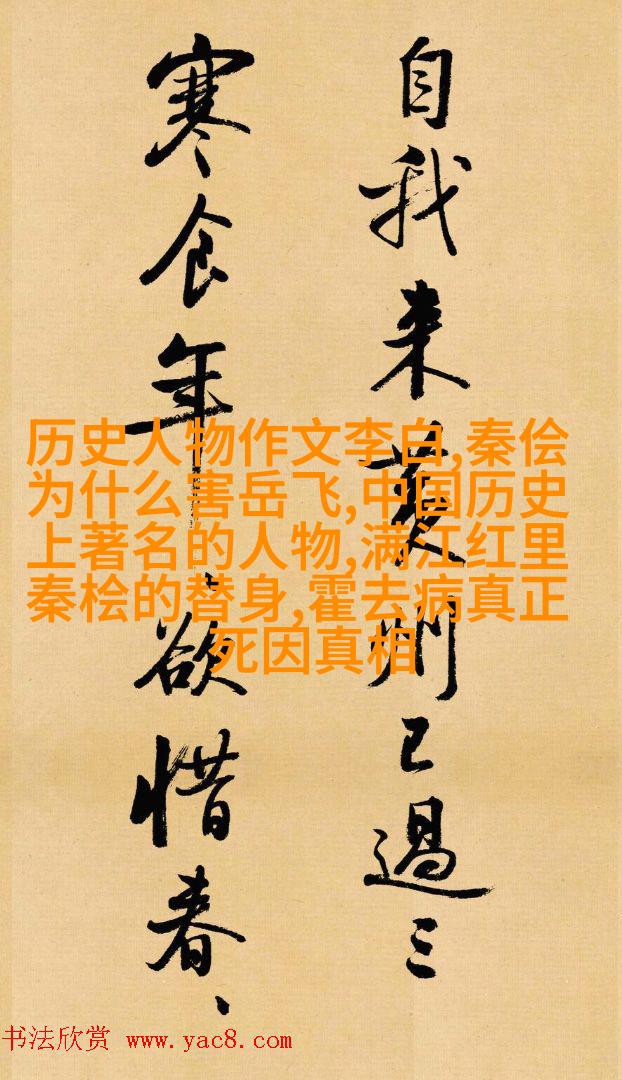 自我来黄州已過三
寒食年、欲惜春、
历史人物作文李白,秦侩
为什么害岳飞,中国历史
上著名的人物,满江红里
秦桧的替身,霍去病真正
死因真相
书法欣赏 www.yac8.com